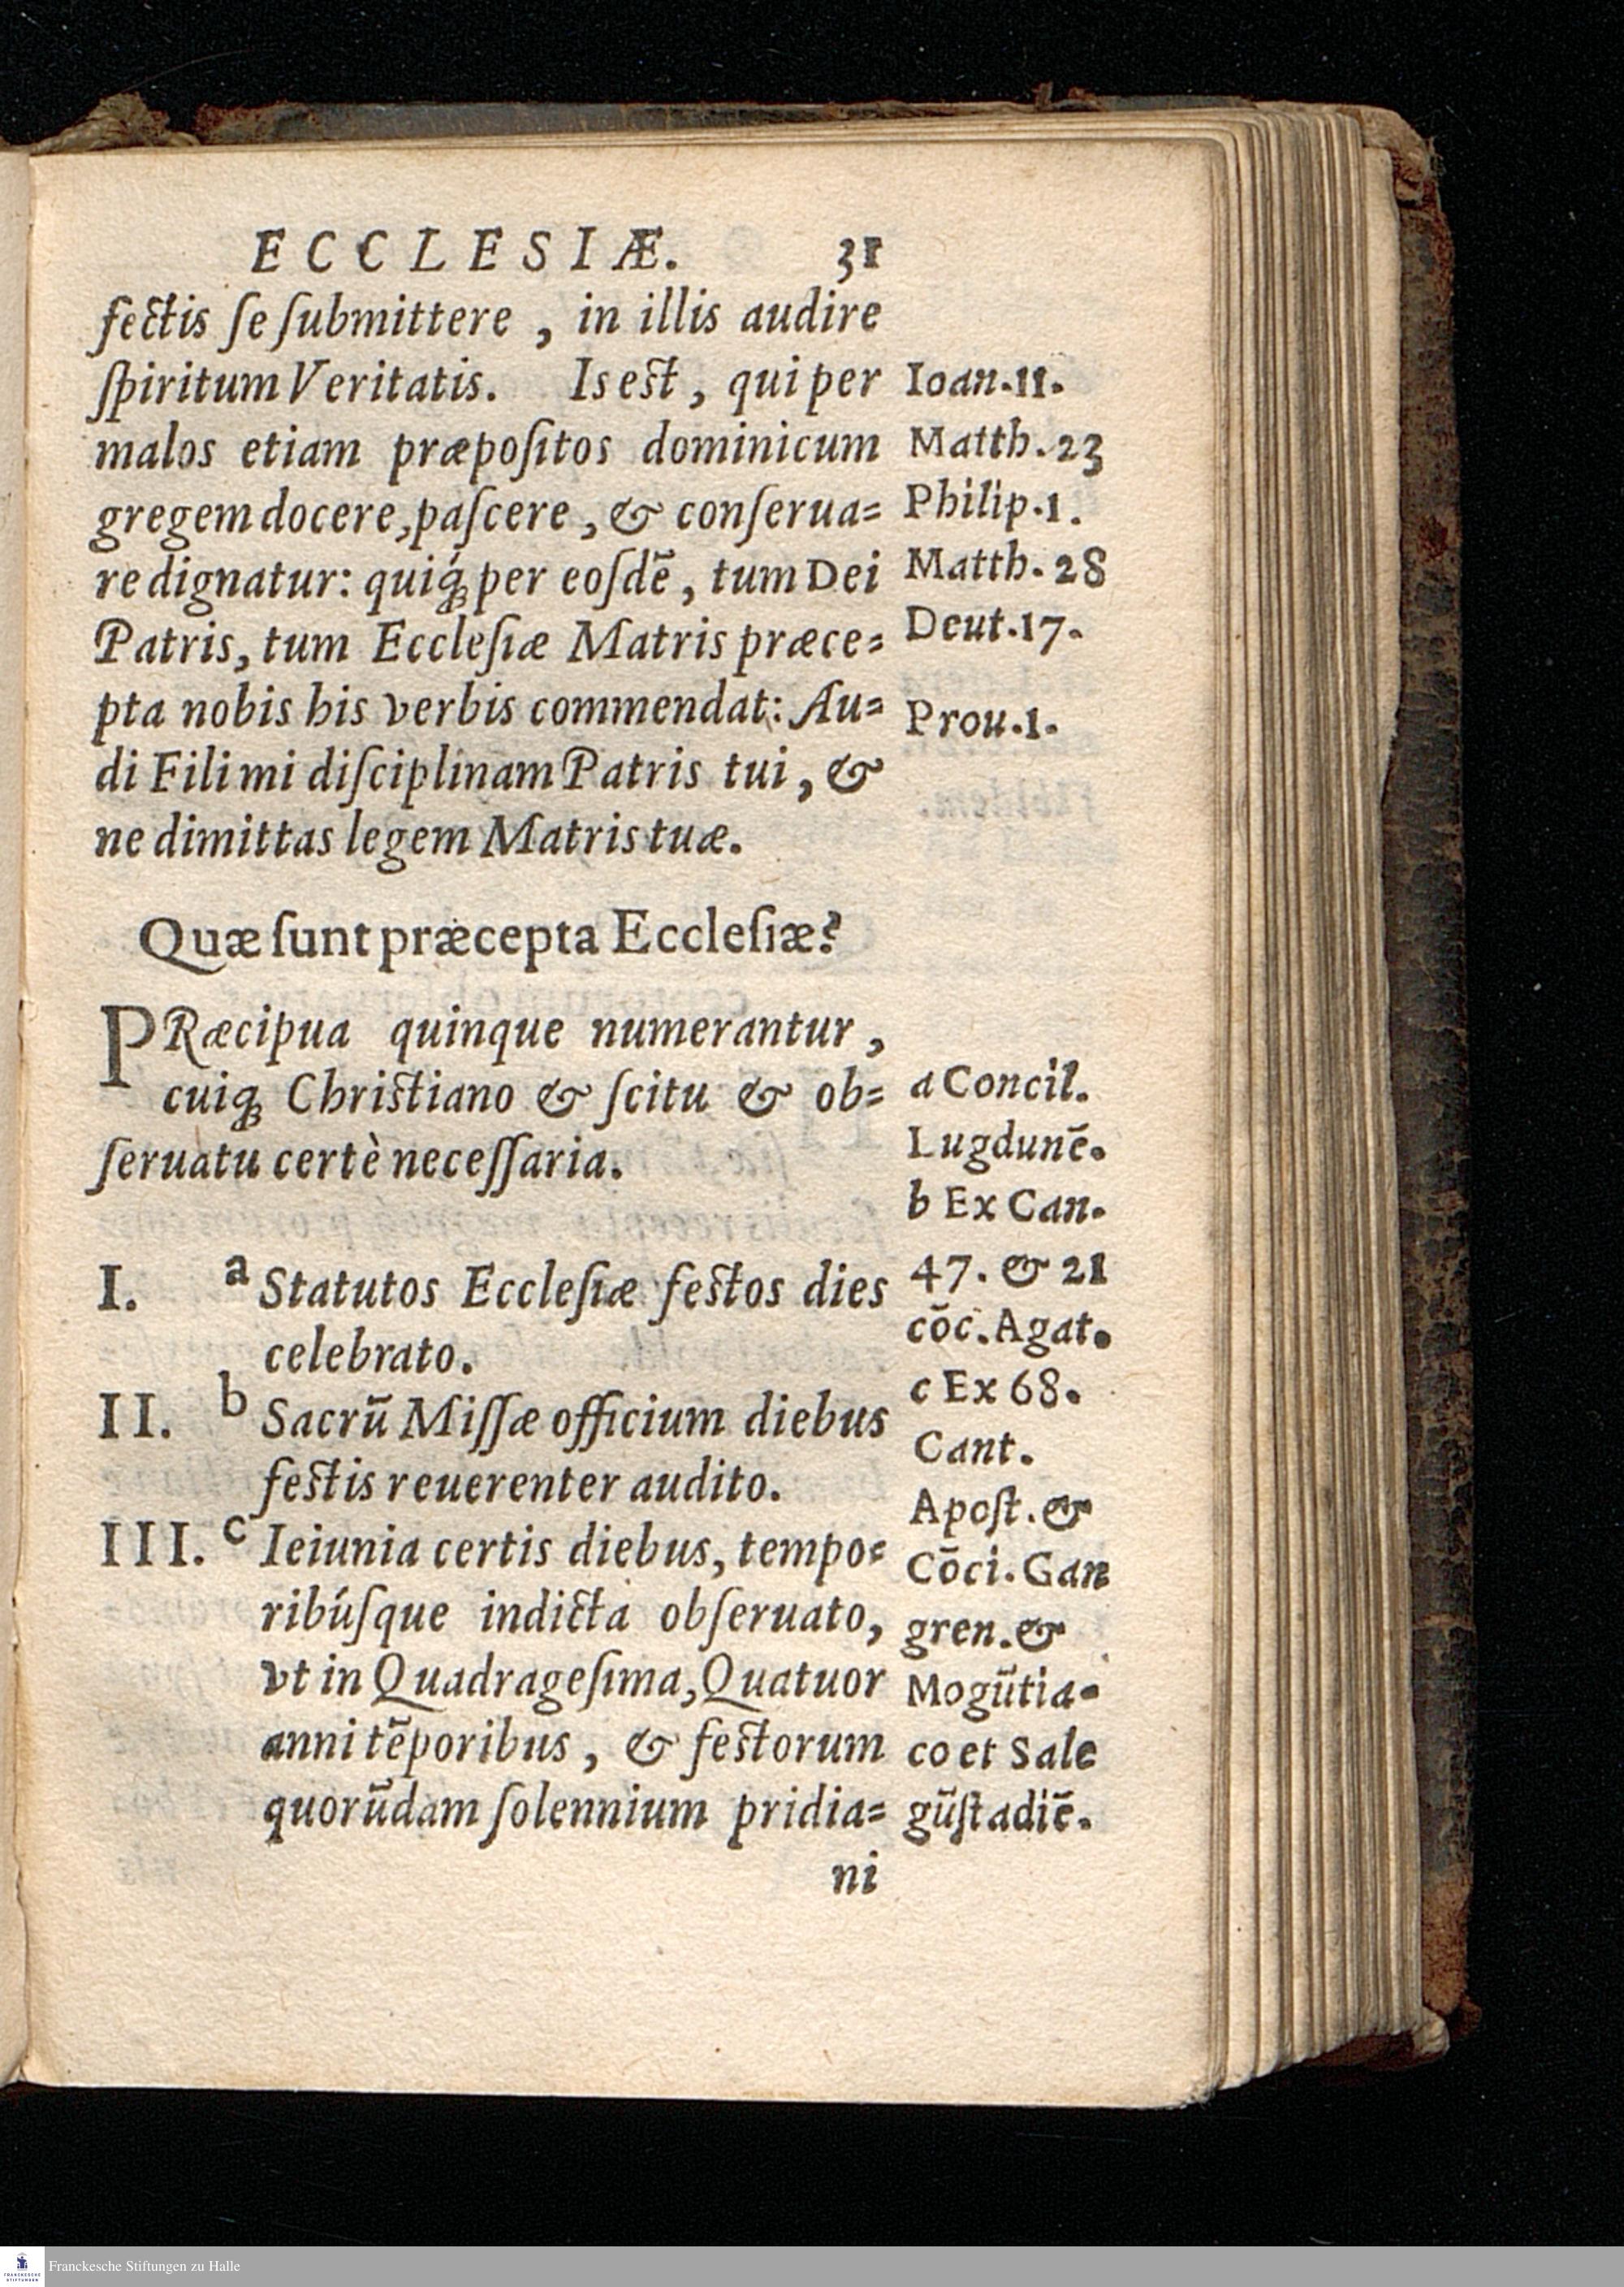 ECCLESIÆ. 31
fectis ſe ſubmittere , in illis audire
ſpiritum Veritatis. Is est , qui per
malos etiam præpoſitos dominicum
gregem docere, paſcere , & conſerua=
re dignatur: quiq́ꝫ per eoſdē , tum Dei
Patris, tum Eccleſiæ Matris præce=
pta nobis his verbis commendat: Au=
di Fili mi diſciplinam Patris tui , &
ne dimittas legem Matris tuæ.
Ioan.11.
Matth.23
Philip.1.
Matth.28
Deut.17.
Prou.1.
Quæ ſunt præcepta Eccleſiæ?
PRæcipua quinque numerantur ,
cuiqꝫ Christiano & ſcitu & ob=
ſeruatu certè neceſſaria.
I. a Statutos Eccleſiæ festos dies
celebrato.
II. b Sacrū Miſſæ officium diebus
festis reuerenter audito.
III. c Ieiunia certis diebus, tempo=
ribúſque indicta obſeruato,
vt in Quadrageſima, Quatuor
anni tēporibus , & festorum
quorūdam ſolennium pridia=
a Concil.
Lugdunē.
b Ex Can.
47. & 21
cōc. Agat.
c Ex 68.
Cant.
Apoſt. &
Cōci. Gan
gren. &
Mogūtia-
co et Sale
gūſtadiē.
ni
Franckesche Stiftungen zu Halle
FRANCKESCHE
STIFTUNGEN